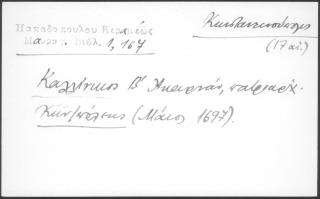 Παπαδοπούλου Κεραμέως
Μαυρογ. Βιβλ. 1, 167
Κωνσταντινούπολις
(17 αἰ.)
Καλλίνικος Β' Ἀκαρνάν, πατριάρχ.
Κων/πόλεως (Μάιος 1697).